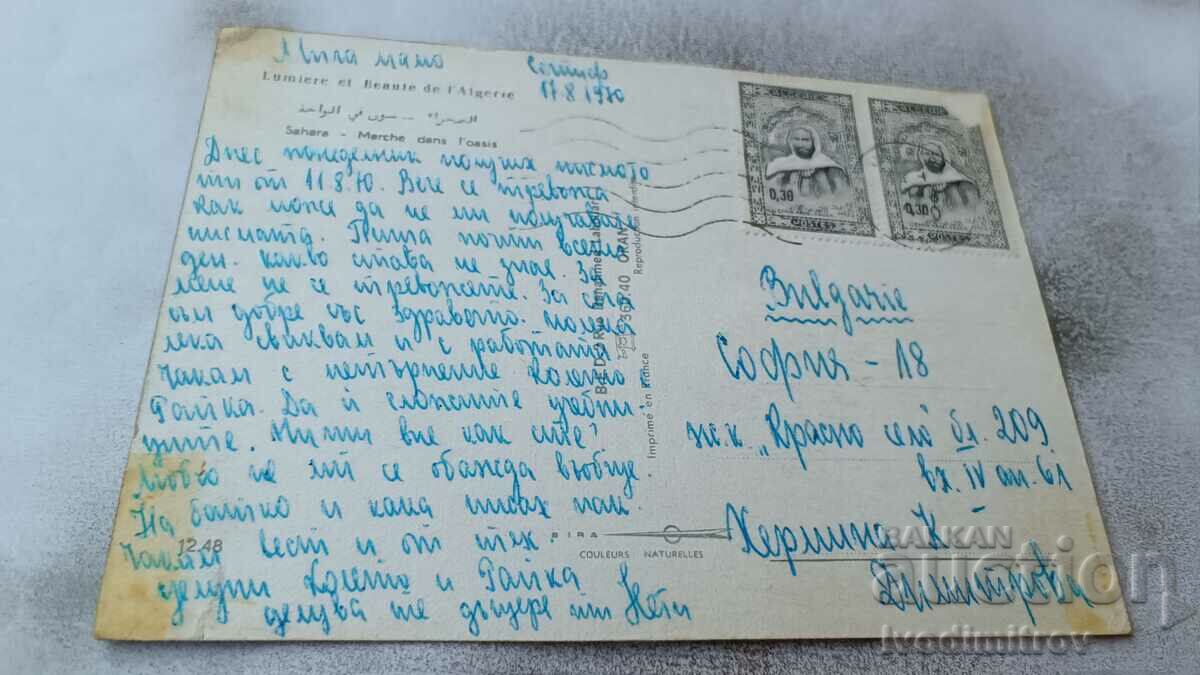 Мила мамо
Сетиф
17.8.1970
Lumiere et Beaute de l'Algerie
الصحراء - سوق في الواحة
Sahara - Marche dans l'oasis
Днес понеделник получих писмото
ти от 11.8.70. Вече се тревожа
как може да не ми получавате
писмата. Пиша почти всеки
ден. какво става не зная. За
мене не се тревожете. За сега
съм добре със здравето.
лека свиквам и с работата
Чакам с нетърпение Колето
Райка. Да й сложите учебни-
ците. Мими вие как сте?
не ми се обажда въобще.
На батко и кака писах пак.
Чакам вест и от тях.
целуни Колето и Райка
целува те дъщеря ти Нети
12.48
BIRA
COULEURS NATURELLES
Imprimé en France
ORAN
ALGERIE
0,30
POSTES
0,30
POSTES
Bulgarie
София - 18
ж.к. „Красно село бл. 209
вх. IV ап. 61
Хермина К.
Димитрова
BALKAN
auction
Ivodimitrov